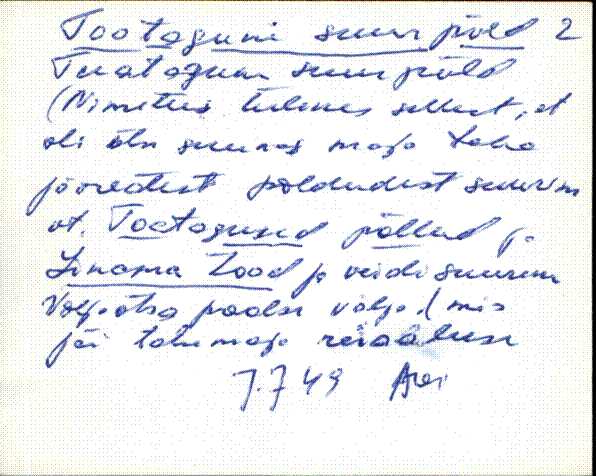 Tootaguni suur põld 2
Tuataguni suur põld
(Nimetus tulenes sellest, et
oli ühe suunas maja taha
jäävatest põldudest suurim
vt. Tootagused põllud ja
Linama lood ja veidi suurem
Väljaotsa poolse välja (mis
jäi tahamaja
7.7 49